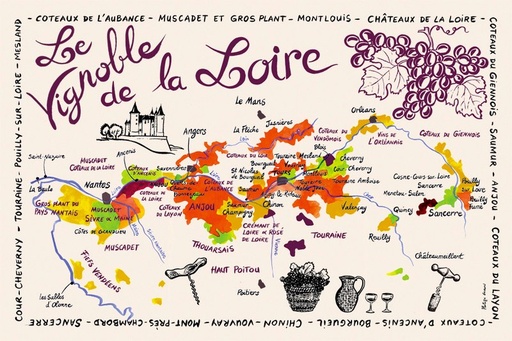 - COTEAUX DE L'AUBANCE - MUSCADET ET GROS PLANT - MONTLOUIS - CHÂTEAUX DE LA LOIRE -
COTEAUX DU GIENNOIS - SAUMUR - ANJOU - COTEAUX DU LAYON
- COTEAUX D'ANCENIS - BOURGUEIL - CHINON - VOUVRAY - MONT-PRÈS-CHAMBORD - SANCERRE
COUR-CHEVERNY - TOURAINE - POUILLY-SUR-LOIRE - MESLAND
Le
Vignoble
de la Loire
Le Mans
Orléans
La Flèche
Jasnières
Angers
COTEAUX DU
VENDÔMOIS
Blois
VINS DE
L'ORLÉANAIS
COTEAUX DU GIENNOIS
Saint-Nazaire
MUSCADET
COTEAUX DE LA LOIRE
ANCENIS
COTEAUX
D'ANCENIS
Savennières
COTEAUX DU LOIR
Touraine Mesland
Cheverny
Cour Cheverny
La Baule
Nantes
St Nicolas
de Bourgueil
Bourgueil
Tours
Cosne-Cours-sur-Loire
Sancerre
Menetou-Salon
Pouilly
sur Loire
Pouilly
Fumé
GROS PLANT DU
PAYS NANTAIS
MUSCADET
SÈVRE ET MAINE
COTEAUX
DU LAYON
ANJOU
COTEAUX DE
L'AUBANCE
Saumur
Champigny
Chinon
Touraine Amboise
Valençay
Quincy
Sancerre
CÔTES DE GRANDLIEU
CRÉMANT DE
LOIRE ET ROSÉ
DE LOIRE
TOURAINE
Reuilly
MUSCADET
THOUARSAIS
Vienne
FIEFS VENDÉENS
HAUT POITOU
Châteaumeillant
Les Sables
d'Olonne
Poitiers